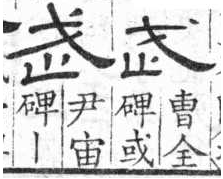 武
曹全
碑或
武
尹宙
碑丨